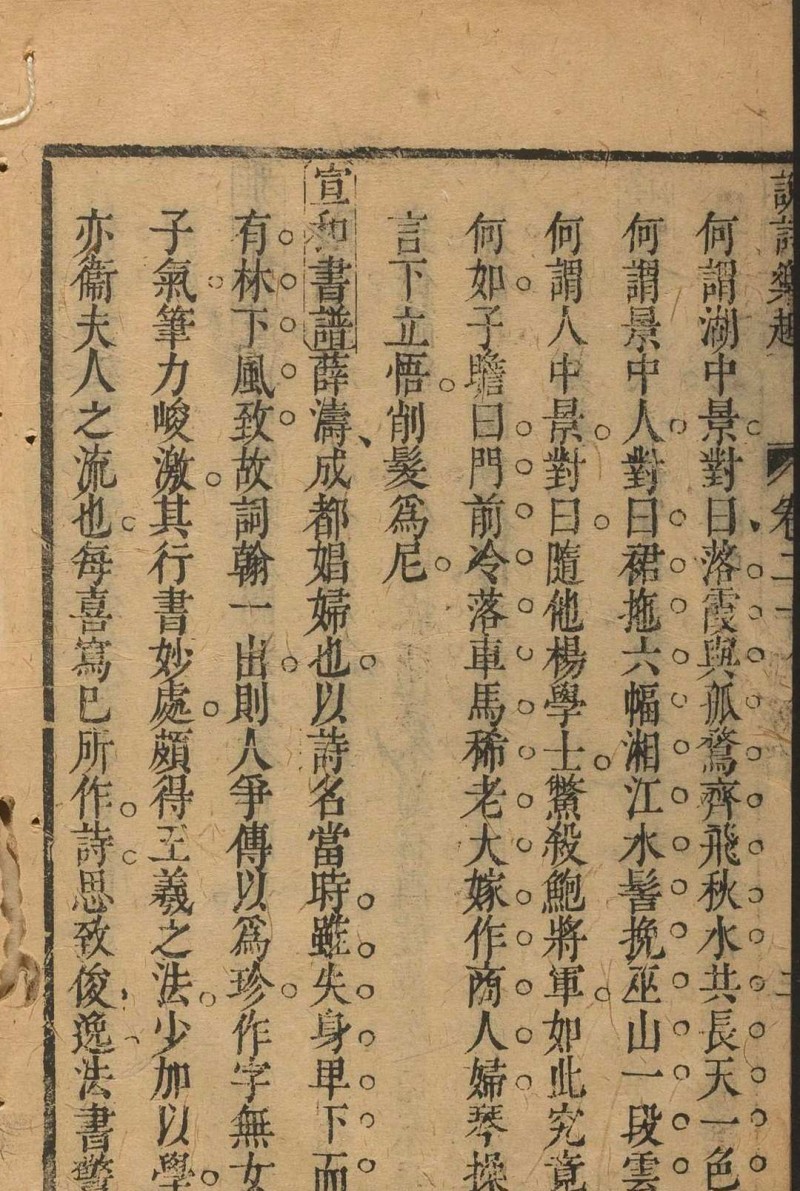 卷二十
何謂湖中景對曰落霞與孤鶩齊飛秋水共長天一色
何謂景中人對曰裙拖六幅湘江水髻挽巫山一段雲
何謂人中景對曰隨他楊學士鱉殺鮑將軍如此究竟
何如子瞻曰門前冷落車馬稀老大嫁作商人婦琴操
言下立悟削髮爲尼
宣和書譜薛濤成都娼婦也以詩名當時雖失身卑下而
有林下風致故詞翰一出則人爭傳以爲珍作字無女
子氣筆力峻激其行書妙處頗得王羲之法少加以學
亦衞夫人之流也每喜寫已所作詩思致俊逸法書警